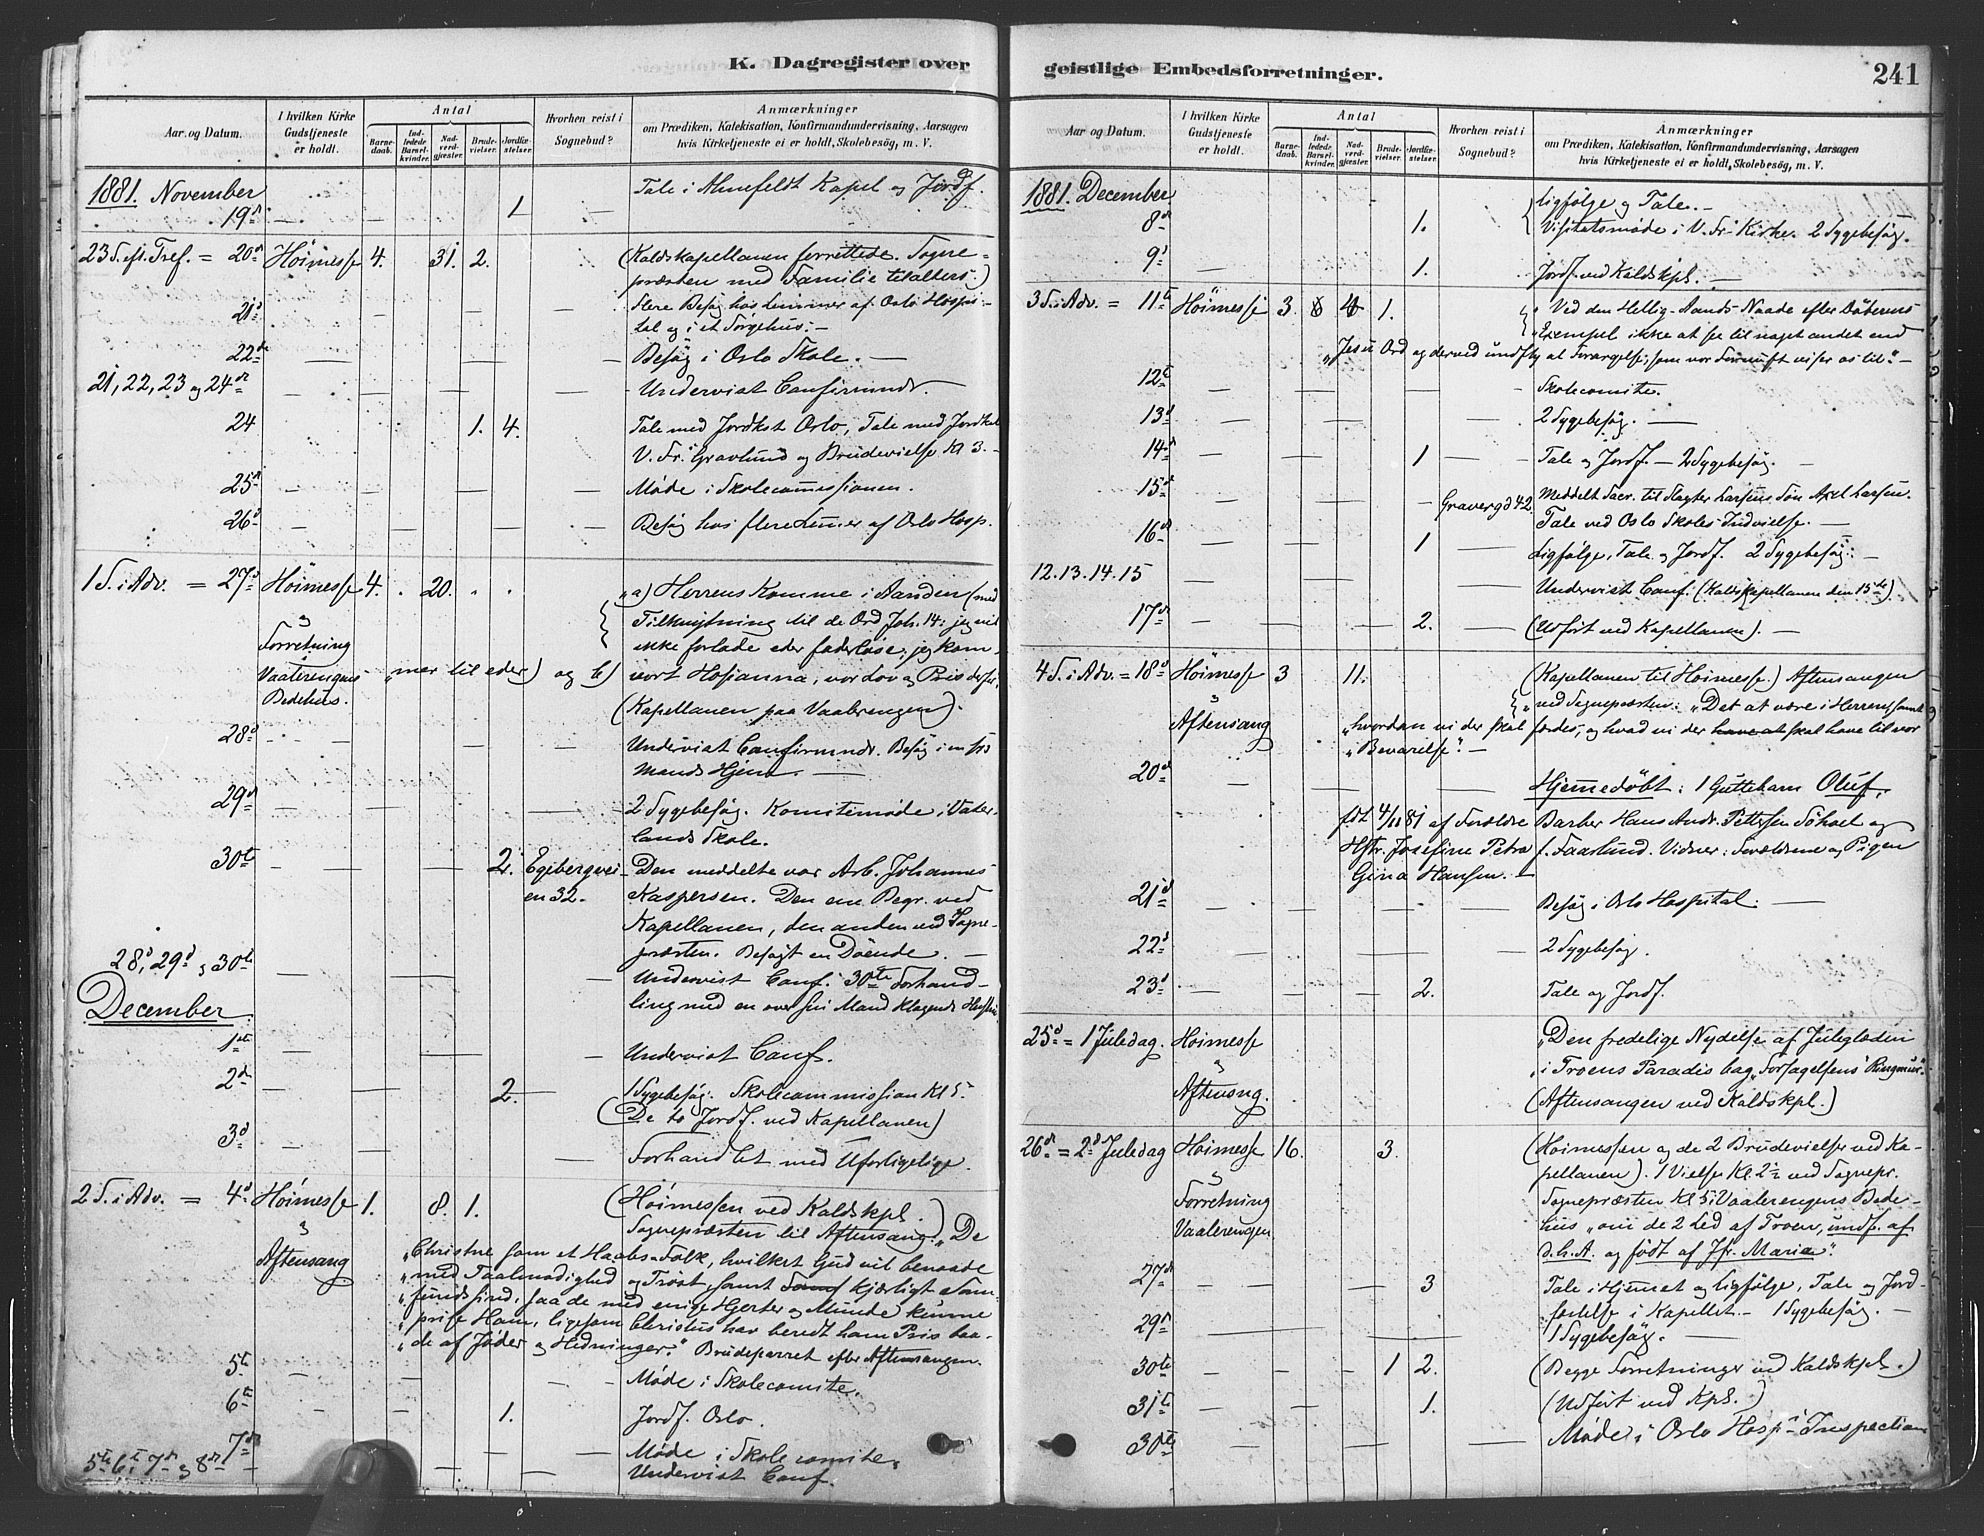 K. Dagregister over
Aar og Datum.
I hvilken Kirke
Gudstjeneste
er holdt.
Antal
Barne-
daab.
Ind-
ledede
Barsel-
kvinder.
Nad-
verd-
gjæster.
Brude-
vielser.
Jordfæ-
stelser.
Hvorhen reist i
Sognebud?
Anmærkninger
om Prædiken, Katekisation, Konfirmandundervisning, Aarsagen
hvis Kirketjeneste ei er holdt, Skolebesøg, m. V.
1881. November Tale i Ahnefeldt Kapel og Jordf.
19d — — 1 —
23 S. eft. Tref. = 20d Høimesse 4. 31. 2. (Kaldskapellanen forrettede. Sogne-
præsten med Familie tilalters.)
21d flere Besøg hos Lemmer af Oslo Hospi-
tal og i et Sørgehus. —
22de Besøg i Oslo Skole. —
21, 22, 23 og 24d Undervist Confirmand.
24 1. 4. Tale med Jordkst Oslo, Tale med Jordkst
V. Fr. Gravlund og Brudevielse Kl 3. —
25d Møde i Skolecommissionen.
26d Besøg hos flere Lemmer af Oslo Hosp.
1 S. i Adv. = 27d Høimesse 4. 20. „a) Herrens Komme i Aanden (med
& Tilknytning til de Ord Joh. 14: jeg vil
Forretning ikke forlade eder faderløse, jeg kom-
Vaalerengens „mer til eder) og b) vort Hosianna, vor Lov og Pris
Bedehus. (Kapellanen paa Vaalerengen).
28d Undervist Confirmand. Besøg i
Mands Hjem. —
29d 2 Sygebesøg. Komitemøde i Vater-
lands Skole.
30te 2. Egebergvei- Den meddelte var Arb. Johannes
en 32. Kaspersen. Den ene Begr. ved
Kapellanen, den anden ved Sogne-
præsten. Besøgt en Døende. —
28d, 29d & 30te Undervist Conf. 30te Forhand-
December ling med en over sin Mand klagende Hustru
1ste Undervist Conf.
2d 2. 1 Sygebesøg. Skolecommission Kl 5.
(De to Jordf. ved Kapellanen)
3d Forhandlet med Uforligelige.
2 S. i Adv. = 4d Høimesse 1. 8. 1. (Høimessen ved Kaldskpl.)
& Sognepræsten til Aftensang. „De
Aftensang „Christne som et Haabs-Folk, hvilket Gud vil benaade
„med Taalmodighed og Trøst, samt kjærligt Sam-
„fundssind, saa de med enige Hjerter og Munde kunne
„prise Ham, ligesom Christus har beredt ham Pris baa-
„de af Jøder og Hedninger." Brudeparret efter Aftensangen.
5te Møde i Skolecomite.
6te 1. Jordf. Oslo.
7d Møde i Skolecomite.
5te 6te 7d & 8d Undervist Conf.
geistlige Embedsforretninger.
241
Aar og Datum.
I hvilken Kirke
Gudstjeneste
er holdt.
Antal
Barne-
daab.
Ind-
ledede
Barsel-
kvinder.
Nad-
verd-
gjæster.
Brude-
vielser.
Jordfæ-
stelser.
Hvorhen reist i
Sognebud?
Anmærkninger
om Prædiken, Katekisation, Konfirmandundervisning, Aarsagen
hvis Kirketjeneste ei er holdt, Skolebesøg, m. V.
1881. December Ligfølge og Tale. —
8d 1. Visitatsmøde i V. Fr. Kirke. 2 Sygebesøg.
9d — 1. Jordf. ved Kaldskpl. —
3 S. i Adv. = 11te Høimesse 3 4 1. „Ved den Hellig-Aands Naade efter Døberens
„Exempel ikke at se til noget andet end
„Jesu Ord og derved undfly al Forargelse, som vor Fornuft viser os til." —
12te Skolecomite.
13d 2 Sygebesøg. —
14d 1 Tale og Jordf. — 2 Sygebesøg. —
15d Gravergd 42. Meddelt Sacr. til Slagter Larsens Søn Axel Larsen.
Tale ved Oslo Skoles Indvielse. —
16d 1 Ligfølge, Tale og Jordf. 2 Sygebesøg. —
12. 13. 14. 15 Undervist Conf. (Kaldskapellanen den 15de)
17d 2. (Udført ved Kapellanen). —
4 S. i Adv. = 18d Høimesse 3 11. (Kapellanen til Høimesse.) Aftensangen
& ved Sognepræsten: „Det at være i Herrens
Aftensang „hvordan vi der skal fordes, og hvad vi der have at skal have til vor
„Bevarelse". —
20d Hjemmedøbt: 1 Guttebarn Oluf,
født 4/11 81 af Forældre Barber Hans Andr. Pettersen og
Hstr. Josefine Petra f. Faarlund. Vidner: Forældrene og Pigen
Gina Hansen. —
21d Besøg i Oslo Hospital. —
22d 2 Sygebesøg.
23d 2. Tale og Jordf.
25d = 1 Juledag. Høimesse „Den fredelige Nydelse af Juleglæden
& „i Troens Paradis bag „Forsagelsens Ringmur".
Aftensang. (Aftensangen ved Kaldskpl.)
26d = 2d Juledag Høimesse 16. 3. (Høimessen og de 2 Brudevielser ved Ka-
& pellanen). 1 Vielse Kl. 2½ ved Sognepr.
Forretning Sognepræsten Kl 5 i Vaalerengens Bede-
Vaalerengen. hus „om de 2 Led af Troen, undf. af
d. h. A. og født af Jfr. Maria".
27d 3 Tale i Hjemmet og Ligfølge, Tale og Jord-
fæstelse i Kapellet. — 1 Sygebesøg. —
29d 1 Sygebesøg. —
30te 1 2. (Begge Forretninger ved Kaldskpl.)
31te 1. (Udført ved Kpl.)
30te Møde i Oslo Hosp. Inspection